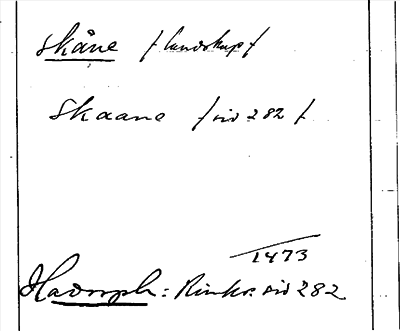 Skåne /landskap/
Skaane /sid 282/
1473
Hadorph: Rimkr. sid 282